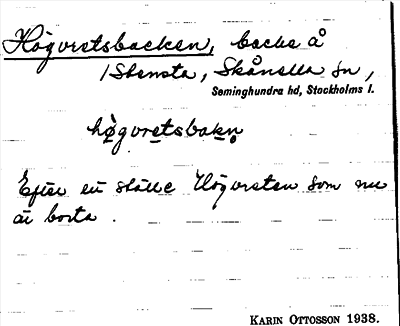 Högvretsbacken, backe å
/Stensta, Skånella sn,
Seminghundra hd, Stockholms l.
hö̀gvretsbakn̥
Efter ett ställe Högvreten som nu
är borta.
KARIN OTTOSSON 1938.